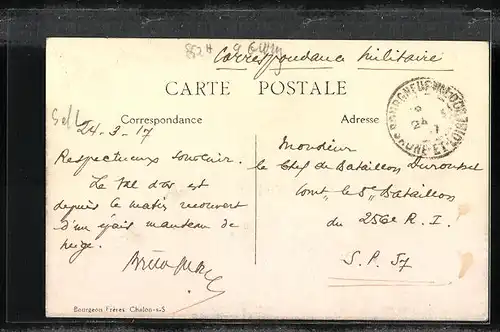 Correspondance Militaire
CARTE POSTALE
Correspondance
Adresse
24-3-17
Respectueux souvenir.
Le Val d'or est
depuis le matin recouvert
d'un épais manteau de
neige.
Monsieur
le Chef de Bataillon
Comt le 5e Bataillon
du 256e R. I.
S. P. 57
SAONE-ET-LOIRE
Bourgeon Frères, Chalon-s-S